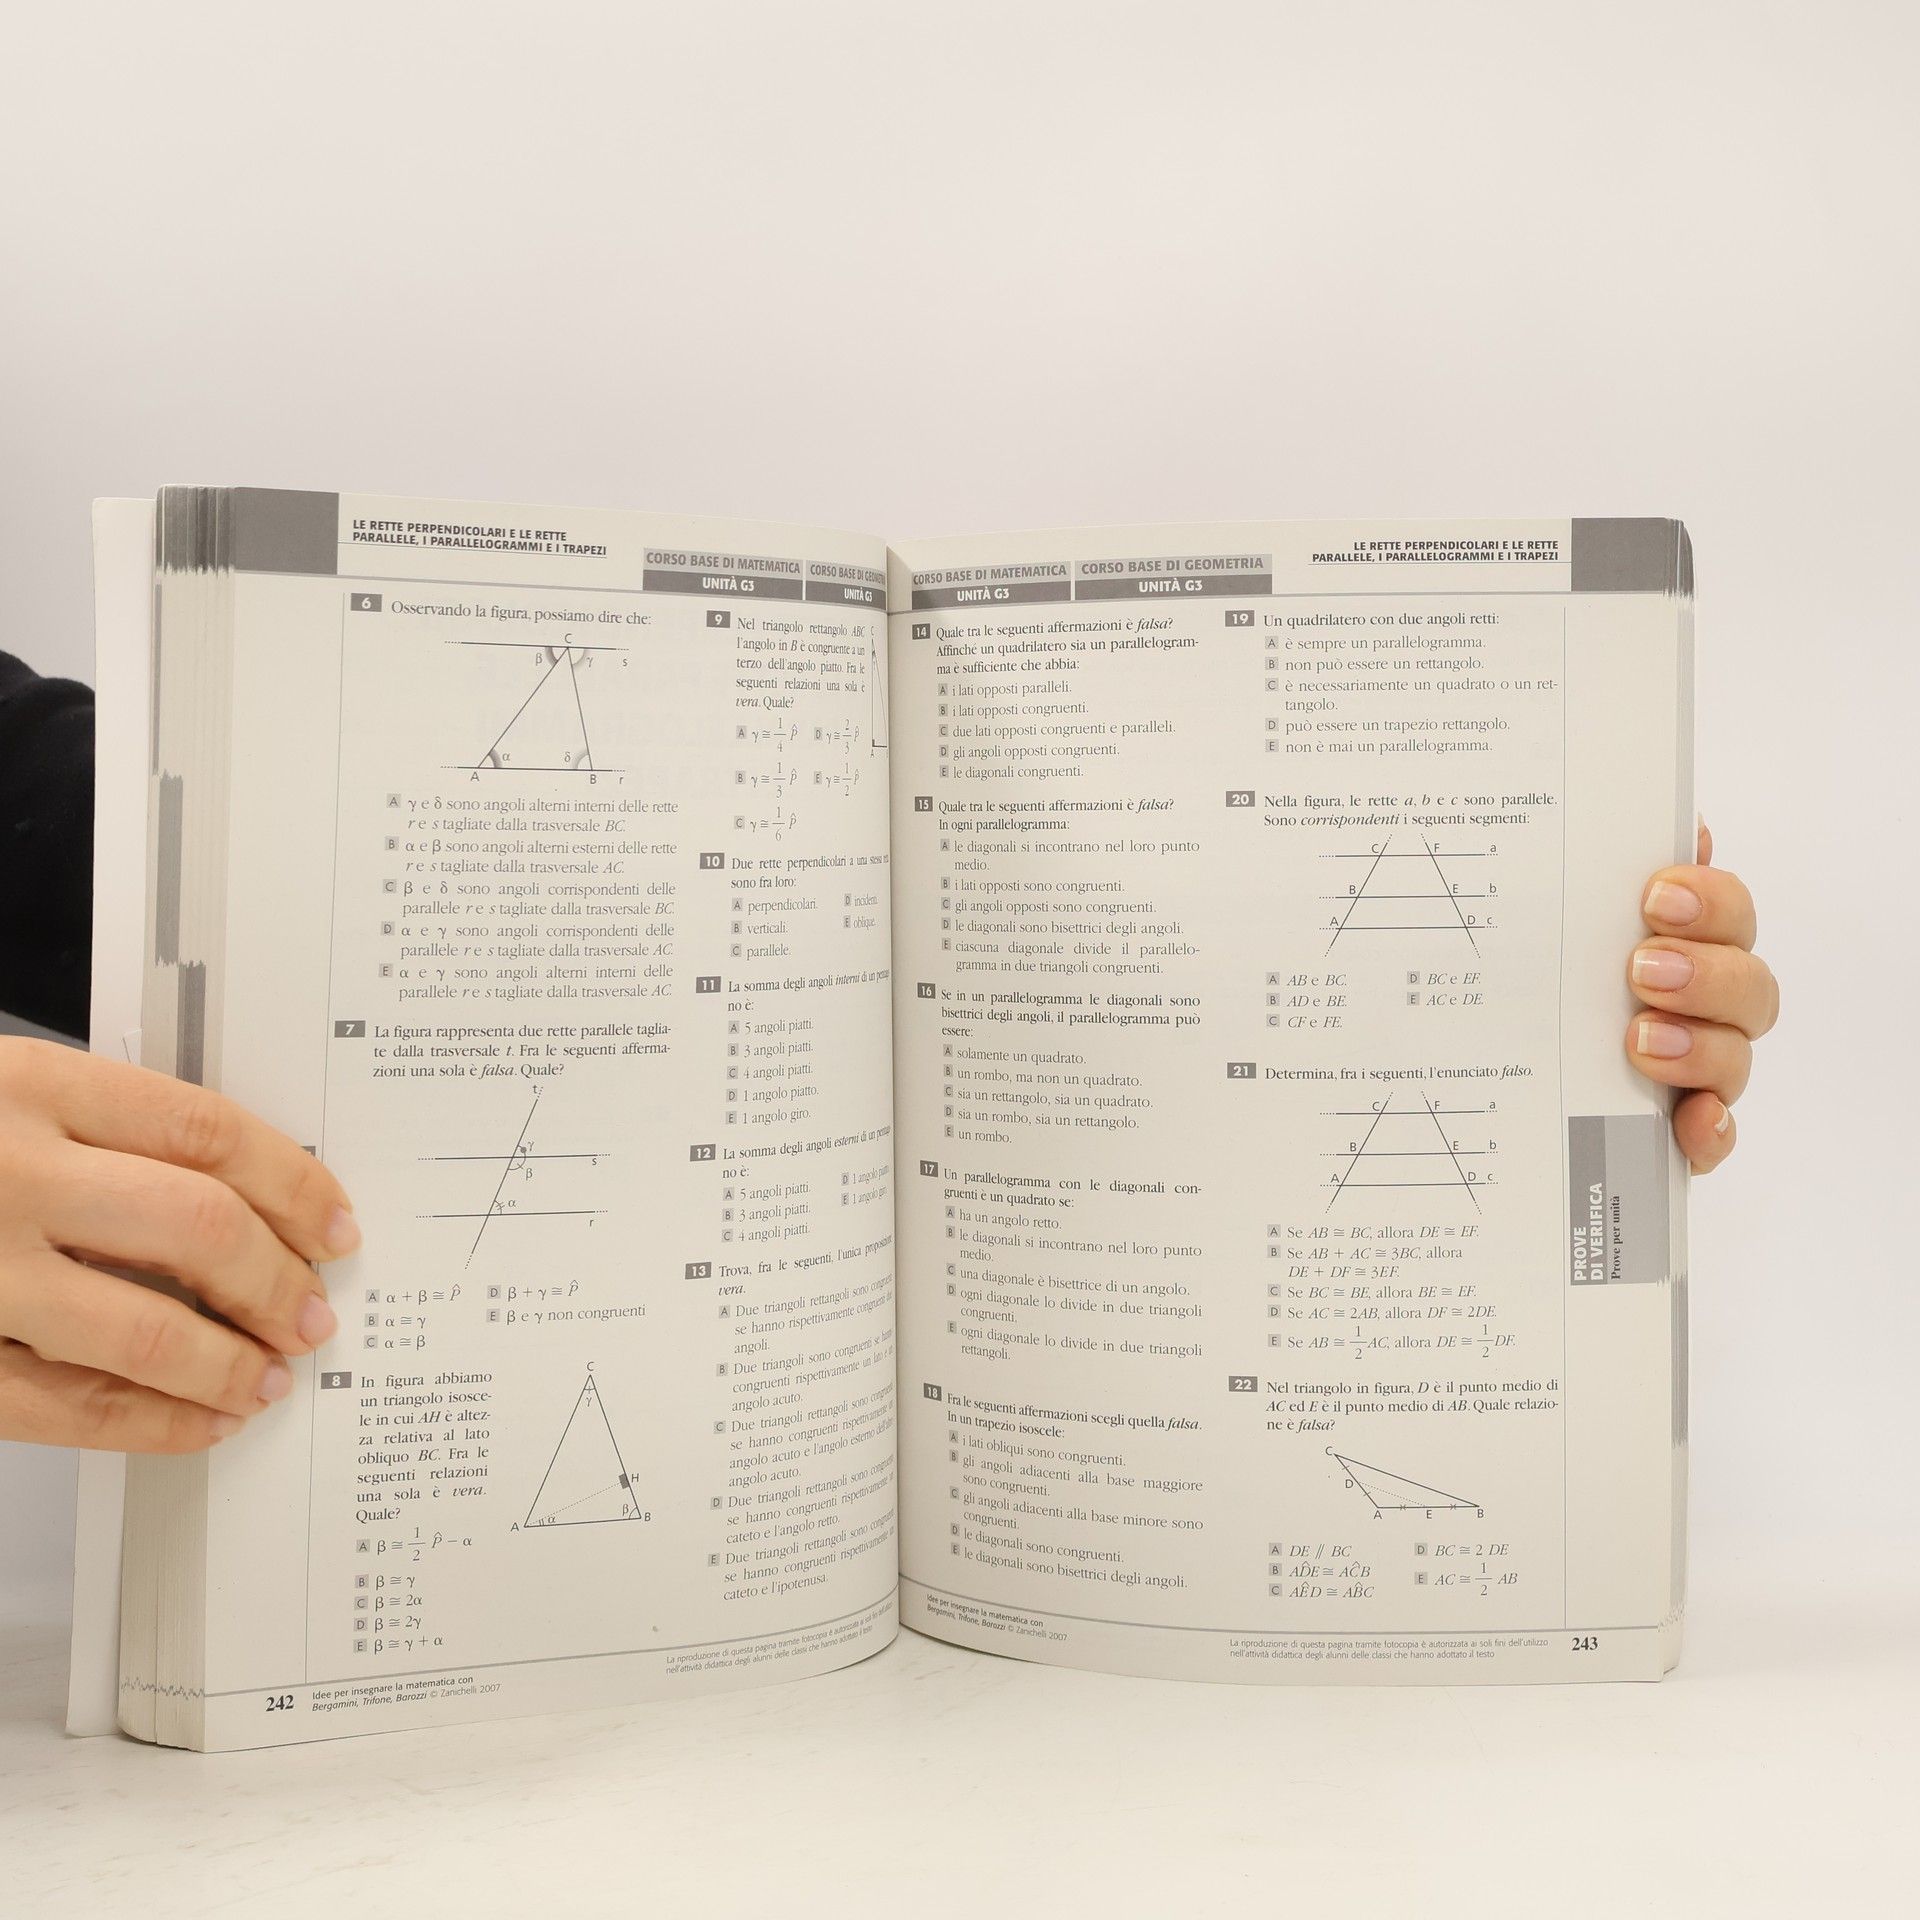 LE RETTE PERPENDICOLARI E LE RETTE
PARALLELE, I PARALLELOGRAMMI E I TRAPEZI
CORSO BASE DI MATEMATICA
UNITÀ G3
CORSO BASE DI GEOMETRIA
UNITÀ G3
6 Osservando la figura, possiamo dire che:
C
β γ s
α δ
A B r
A γ e δ sono angoli alterni interni delle rette
r e s tagliate dalla trasversale BC.
B α e β sono angoli alterni esterni delle rette
r e s tagliate dalla trasversale AC.
C β e δ sono angoli corrispondenti delle
parallele r e s tagliate dalla trasversale BC.
D α e γ sono angoli corrispondenti delle
parallele r e s tagliate dalla trasversale AC.
E α e γ sono angoli alterni interni delle
parallele r e s tagliate dalla trasversale AC.
7 La figura rappresenta due rette parallele taglia-
te dalla trasversale t. Fra le seguenti afferma-
zioni una sola è falsa. Quale?
t
γ
s
β
α
r
A α + β ≅ P̂ D β + γ ≅ P̂
B α ≅ γ E β e γ non congruenti
C α ≅ β
8 In figura abbiamo
un triangolo isosce-
le in cui AH è altez-
za relativa al lato
obliquo BC. Fra le
seguenti relazioni
una sola è vera.
Quale?
C
γ
H
β
A α B
A β ≅ 1/2 P̂ − α
B β ≅ γ
C β ≅ 2α
D β ≅ 2γ
E β ≅ γ + α
9 Nel triangolo rettangolo ABC
l'angolo in B è congruente a un
terzo dell'angolo piatto. Fra le
seguenti relazioni una sola è
vera. Quale?
C
A
A γ ≅ 1/4 P̂ D γ ≅ 2/3 P̂
B γ ≅ 1/3 P̂ E γ ≅ 1/2 P̂
C γ ≅ 1/6 P̂
10 Due rette perpendicolari a una stessa
sono fra loro:
A perpendicolari. D incidenti.
B verticali. E oblique.
C parallele.
11 La somma degli angoli interni di un
no è:
A 5 angoli piatti.
B 3 angoli piatti.
C 4 angoli piatti.
D 1 angolo piatto.
E 1 angolo giro.
12 La somma degli angoli esterni di un
no è:
A 5 angoli piatti. D 1 angolo
B 3 angoli piatti. E 1 angolo
C 4 angoli piatti.
13 Trova, fra le seguenti, l'unica proposizione
vera.
A Due triangoli rettangoli sono
se hanno rispettivamente congruenti
angoli.
B Due triangoli sono congruenti se hanno
congruenti rispettivamente un lato e un
angolo acuto.
C Due triangoli rettangoli sono
se hanno congruenti rispettivamente un
angolo acuto e l'angolo esterno
angolo acuto.
D Due triangoli rettangoli sono congruenti
se hanno congruenti rispettivamente un
cateto e l'angolo retto.
E Due triangoli rettangoli sono congruenti
se hanno congruenti rispettivamente un
cateto e l'ipotenusa.
242
Idee per insegnare la matematica con
Bergamini, Trifone, Barozzi © Zanichelli 2007
La riproduzione di questa pagina tramite fotocopia è autorizzata ai soli fini dell'utilizzo
nell'attività didattica degli alunni delle classi che hanno adottato il testo
CORSO BASE DI MATEMATICA
UNITÀ G3
CORSO BASE DI GEOMETRIA
UNITÀ G3
LE RETTE PERPENDICOLARI E LE RETTE
PARALLELE, I PARALLELOGRAMMI E I TRAPEZI
14 Quale tra le seguenti affermazioni è falsa?
Affinché un quadrilatero sia un parallelogram-
ma è sufficiente che abbia:
A i lati opposti paralleli.
B i lati opposti congruenti.
C due lati opposti congruenti e paralleli.
D gli angoli opposti congruenti.
E le diagonali congruenti.
15 Quale tra le seguenti affermazioni è falsa?
In ogni parallelogramma:
A le diagonali si incontrano nel loro punto
medio.
B i lati opposti sono congruenti.
C gli angoli opposti sono congruenti.
D le diagonali sono bisettrici degli angoli.
E ciascuna diagonale divide il parallelo-
gramma in due triangoli congruenti.
16 Se in un parallelogramma le diagonali sono
bisettrici degli angoli, il parallelogramma può
essere:
A solamente un quadrato.
B un rombo, ma non un quadrato.
C sia un rettangolo, sia un quadrato.
D sia un rombo, sia un rettangolo.
E un rombo.
17 Un parallelogramma con le diagonali con-
gruenti è un quadrato se:
A ha un angolo retto.
B le diagonali si incontrano nel loro punto
medio.
C una diagonale è bisettrice di un angolo.
D ogni diagonale lo divide in due triangoli
congruenti.
E ogni diagonale lo divide in due triangoli
rettangoli.
18 Fra le seguenti affermazioni scegli quella falsa.
In un trapezio isoscele:
A i lati obliqui sono congruenti.
B gli angoli adiacenti alla base maggiore
sono congruenti.
C gli angoli adiacenti alla base minore sono
congruenti.
D le diagonali sono congruenti.
E le diagonali sono bisettrici degli angoli.
19 Un quadrilatero con due angoli retti:
A è sempre un parallelogramma.
B non può essere un rettangolo.
C è necessariamente un quadrato o un ret-
tangolo.
D può essere un trapezio rettangolo.
E non è mai un parallelogramma.
20 Nella figura, le rette a, b e c sono parallele.
Sono corrispondenti i seguenti segmenti:
C F a
B E b
A D c
A AB e BC. D BC e EF.
B AD e BE. E AC e DE.
C CF e FE.
21 Determina, fra i seguenti, l'enunciato falso.
C F a
B E b
A D c
A Se AB ≅ BC, allora DE ≅ EF.
B Se AB + AC ≅ 3BC, allora
DE + DF ≅ 3EF.
C Se BC ≅ BE, allora BE ≅ EF.
D Se AC ≅ 2AB, allora DF ≅ 2DE.
E Se AB ≅ 1/2 AC, allora DE ≅ 1/2 DF.
22 Nel triangolo in figura, D è il punto medio di
AC ed E è il punto medio di AB. Quale relazio-
ne è falsa?
C
D
A E B
A DE // BC D BC ≅ 2 DE
B AD̂E ≅ AĈB E AC ≅ 1/2 AB
C AÊD ≅ AB̂C
PROVE
DI VERIFICA
Prove per unità
Idee per insegnare la matematica con
Bergamini, Trifone, Barozzi © Zanichelli 2007
La riproduzione di questa pagina tramite fotocopia è autorizzata ai soli fini dell'utilizzo
nell'attività didattica degli alunni delle classi che hanno adottato il testo
243